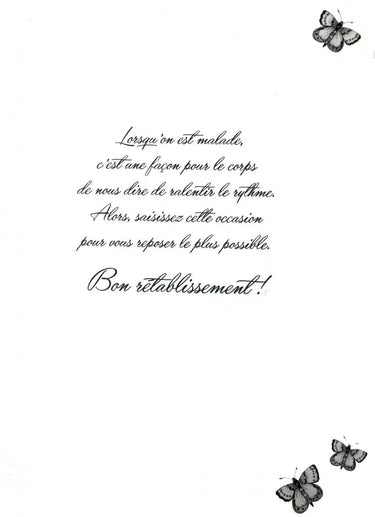 Lorsqu'on est malade,
c'est une façon pour le corps
de nous dire de ralentir le rythme.
Alors, saisissez cette occasion
pour vous reposer le plus possible.
Bon rétablissement !